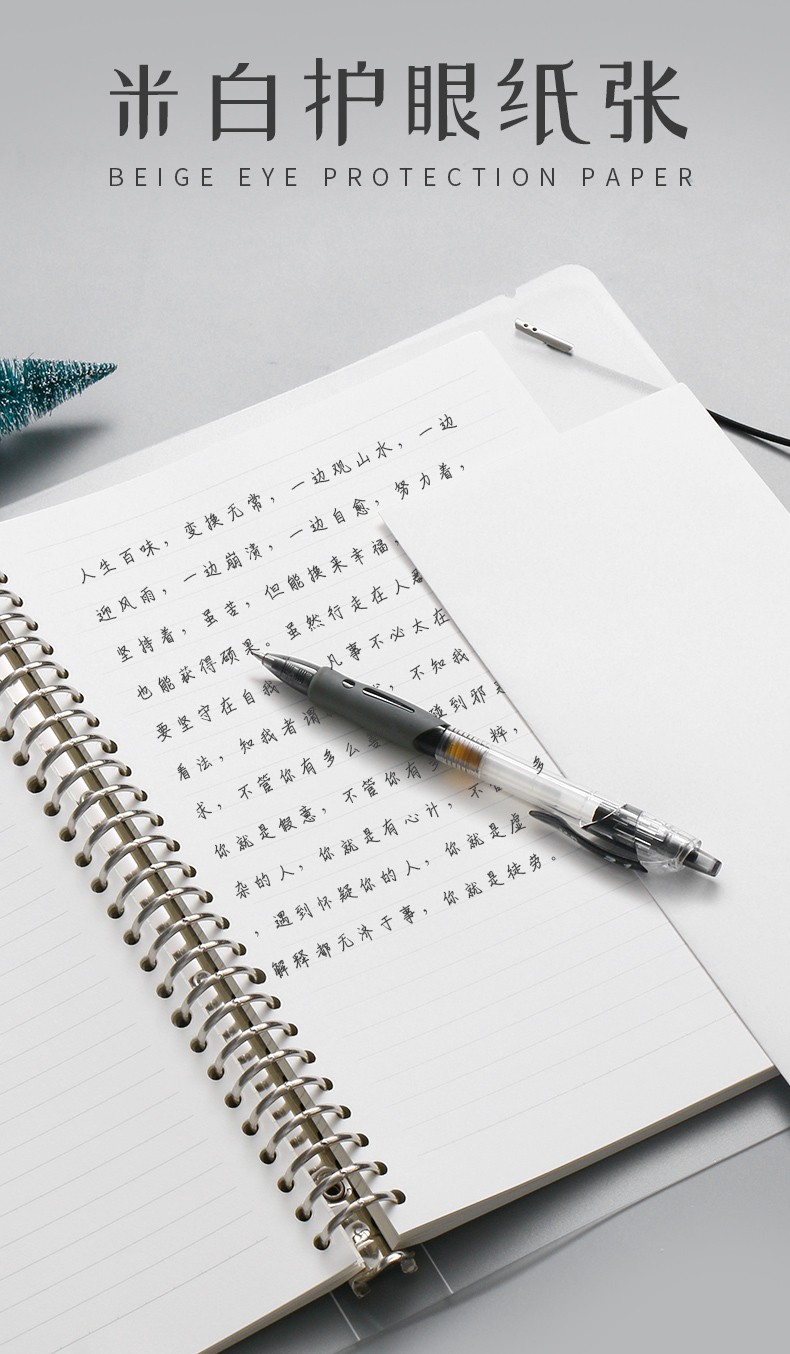 米白护眼纸张
BEIGE EYE PROTECTION PAPER
人生百味，变换无常，一边观山水，一边
迎风雨，一边崩溃，一边自愈，努力着，
坚持着，虽苦，但能换来幸福，
也能获得硕果。虽然行走在人
要坚守在自我 凡事不必太在
看法，知我者谓 心，不知我
求，不管你有多么 碰到邪
你就是假意，不管你有 粹，
杂的人，你就是有心计，不 多
，遇到怀疑你的人，你就是虚
解释都无济于事，你就是徒劳。